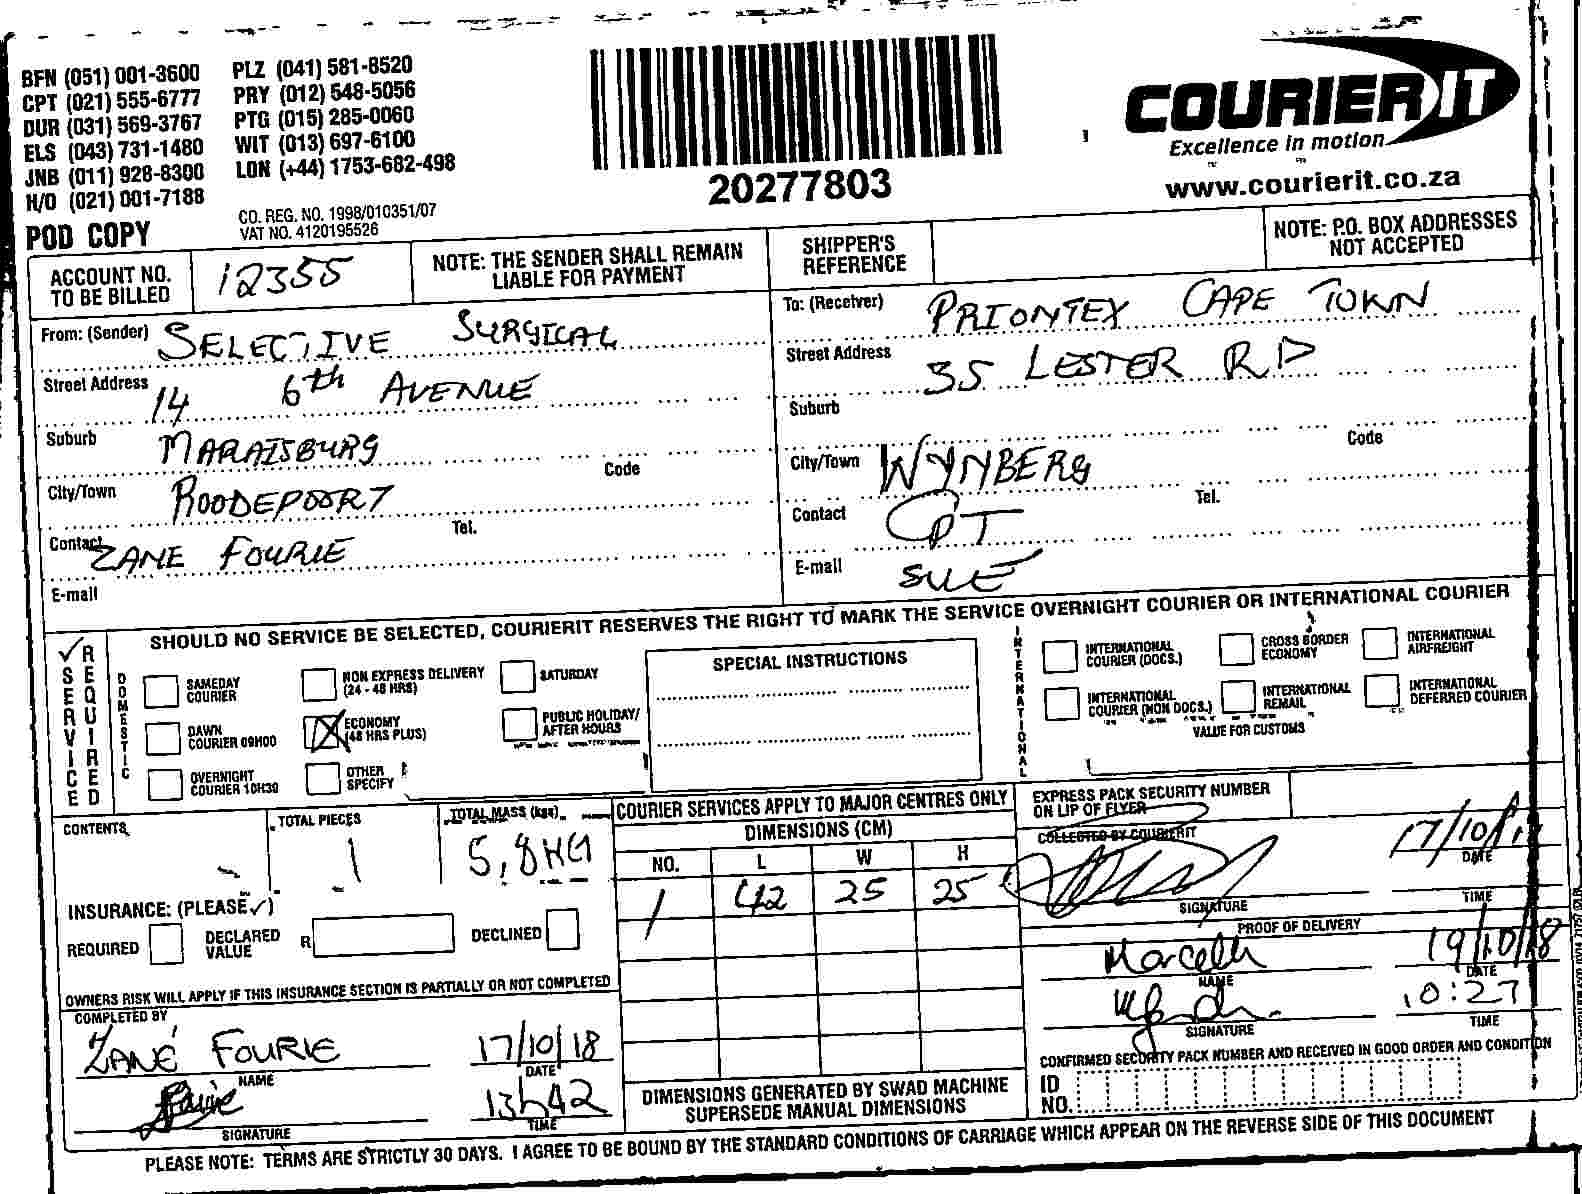 BFN (051) 001-3600 PLZ (041) 581-8520
CPT (021) 555-6777 PRY (012) 548-5056
DUR (031) 569-3767 PTG (015) 285-0060
ELS (043) 731-1480 WIT (013) 697-6100
JNB (011) 928-8300 LON (+44) 1753-682-498
H/O (021) 001-7188
POD COPY
CO. REG. NO. 1998/010351/07
VAT NO. 4120195526
20277803
COURIER IT
Excellence in motion
www.courierit.co.za
ACCOUNT NO. TO BE BILLED 12355
NOTE: THE SENDER SHALL REMAIN LIABLE FOR PAYMENT
SHIPPER'S REFERENCE
NOTE: P.O. BOX ADDRESSES NOT ACCEPTED
From: (Sender) SELECTIVE SURGICAL
Street Address 14 6th AVENUE
Suburb MARAISBURG
Code
City/Town ROODEPOORT
Tel.
Contact ZANE FOURIE
E-mail
To: (Receiver) PRIONTEX CAPE TOWN
Street Address 35 LESTER RD
Suburb
Code
City/Town WYNBERG
Tel.
Contact CPT
E-mail SUE
SHOULD NO SERVICE BE SELECTED, COURIERIT RESERVES THE RIGHT TO MARK THE SERVICE OVERNIGHT COURIER OR INTERNATIONAL COURIER
✓ SERVICE REQUIRED
DOMESTIC
SAMEDAY COURIER
DAWN COURIER 09H00
OVERNIGHT COURIER 10H30
NON EXPRESS DELIVERY (24 - 48 HRS)
ECONOMY (48 HRS PLUS)
OTHER SPECIFY
SATURDAY
PUBLIC HOLIDAY/ AFTER HOURS
SPECIAL INSTRUCTIONS
INTERNATIONAL
INTERNATIONAL COURIER (DOCS.)
CROSS BORDER ECONOMY
INTERNATIONAL AIRFREIGHT
INTERNATIONAL COURIER (NON DOCS.)
INTERNATIONAL REMAIL
INTERNATIONAL DEFERRED COURIER
VALUE FOR CUSTOMS
CONTENTS
TOTAL PIECES 1
TOTAL MASS (kgs) 5,8KG
INSURANCE: (PLEASE ✓)
REQUIRED
DECLARED VALUE R
DECLINED
OWNERS RISK WILL APPLY IF THIS INSURANCE SECTION IS PARTIALLY OR NOT COMPLETED
COMPLETED BY
ZANÉ FOURIE 17/10/18
NAME DATE
13h42
SIGNATURE TIME
COURIER SERVICES APPLY TO MAJOR CENTRES ONLY
DIMENSIONS (CM)
NO. L W H
1 42 25 25
DIMENSIONS GENERATED BY SWAD MACHINE SUPERSEDE MANUAL DIMENSIONS
EXPRESS PACK SECURITY NUMBER ON LIP OF FLYER
COLLECTED BY COURIERIT
DATE
SIGNATURE TIME
PROOF OF DELIVERY
19/10/18
NAME DATE
10:27
SIGNATURE TIME
CONFIRMED SECURITY PACK NUMBER AND RECEIVED IN GOOD ORDER AND CONDITION
ID NO.
PLEASE NOTE: TERMS ARE STRICTLY 30 DAYS. I AGREE TO BE BOUND BY THE STANDARD CONDITIONS OF CARRIAGE WHICH APPEAR ON THE REVERSE SIDE OF THIS DOCUMENT